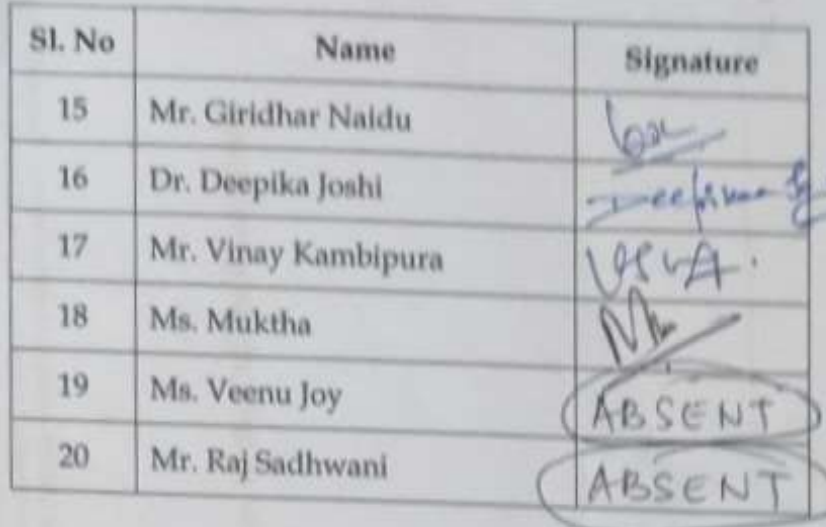 Sl. No Name Signature
15 Mr. Giridhar Naidu
16 Dr. Deepika Joshi
17 Mr. Vinay Kambipura
18 Ms. Muktha
19 Ms. Veenu Joy ABSENT
20 Mr. Raj Sadhwani ABSENT